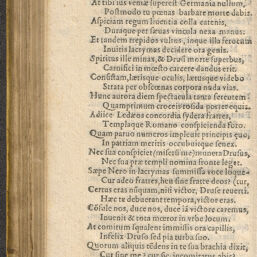 At tibi ius venæ superest Germania nullum,
Postmodo tu pœnas barbare morte dabis.
Aspiciam regum liventia colla catenis,
Duraque per sævas vincla nexa manus:
Et tandem trepidos vultus, inque illa ferocum
Invitis lacrymas decidere ora genis.
Spiritus ille minax, & Drusi morte superbus,
Carnifici in mœsto carcere dandus erit.
Consistam, lætisque oculis, lætusque videbo
Strata per obscœnas corpora nuda vias.
Hunc aurora diem spectacula tanta ferentem
Quamprimum croceis roscida portet equis.
Adiice Ledæos concordia sydera fratres,
Templaque Romano conspicienda foro.
Quam parvo numeros implevit principis ævo,
In patriam meritis occubuitque senex.
Nec sua conspiciet (miserum me) munera Drusus,
Nec sua præ templi nomina fronte leget.
Sæpe Nero in lacrymas summissa voce loquetur
Cur adeo fratres, heu sine fratre deos?
Certus eras nusquam, nisi victor, Druse reverti:
Hæc te debuerant tempora, victor eras.
Cōsule nos, duce nos, duce iā victore caremus,
Invenit & tota mœror in vrbe locum.
At comitum squalent immissis ora capillis,
Infelix Druso sed pia turba suo.
Quorum aliquis tēdens in te sua brachia dixit,
Cur sine me? cur sic incomitatus abis?